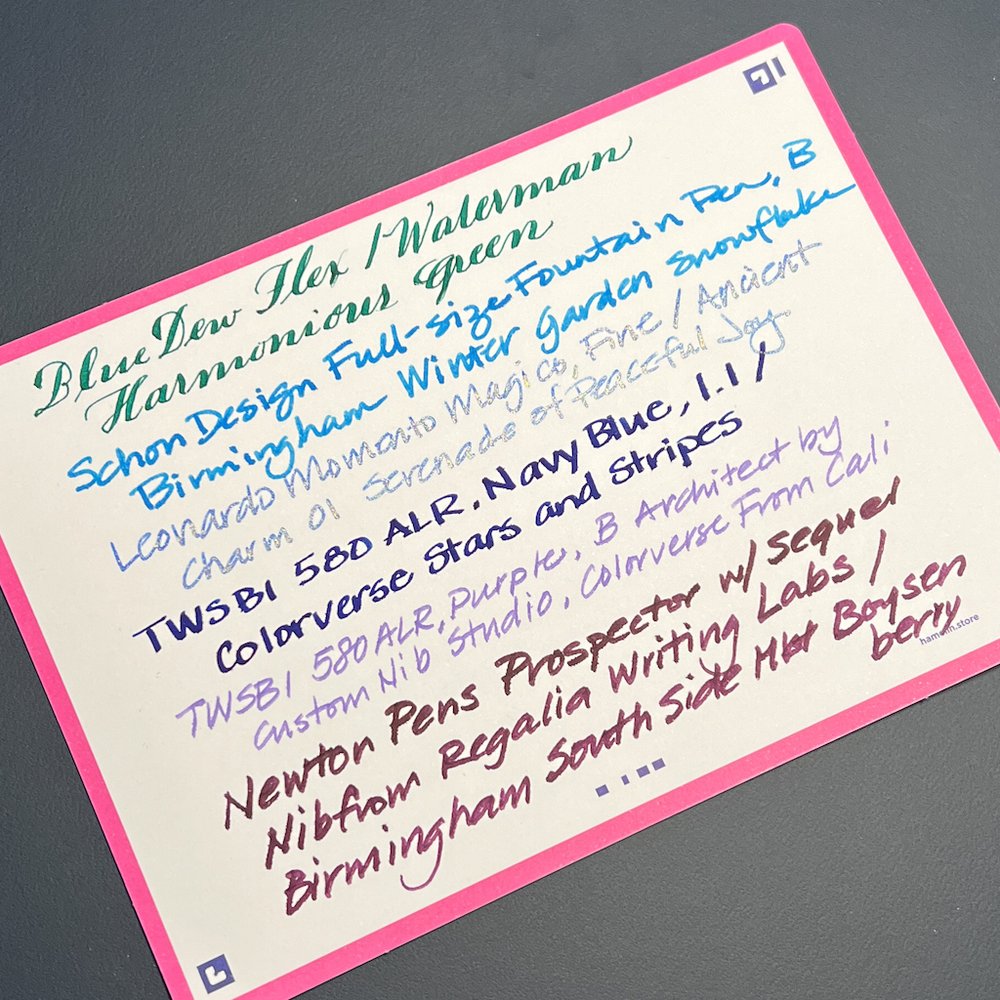 Blue Dew Flex / Waterman
Harmonious Green
Schon Design Full-size Fountain Pen, B
Birmingham Winter Garden Snowflake
Leonardo Momento Magico, Fine / Ancient
Charm 01 Serenade of Peaceful Joy
TWSBI 580 ALR, Navy Blue, 1.1 /
Colorverse Stars and Stripes
TWSBI 580 ALR, Purple, B Architect by
Custom Nib Studio, Colorverse From Cali
Newton Pens Prospector w/ Sequel
Nib from Regalia Writing Labs /
Birmingham South Side Mkt Boysen
berry
hamelin.store